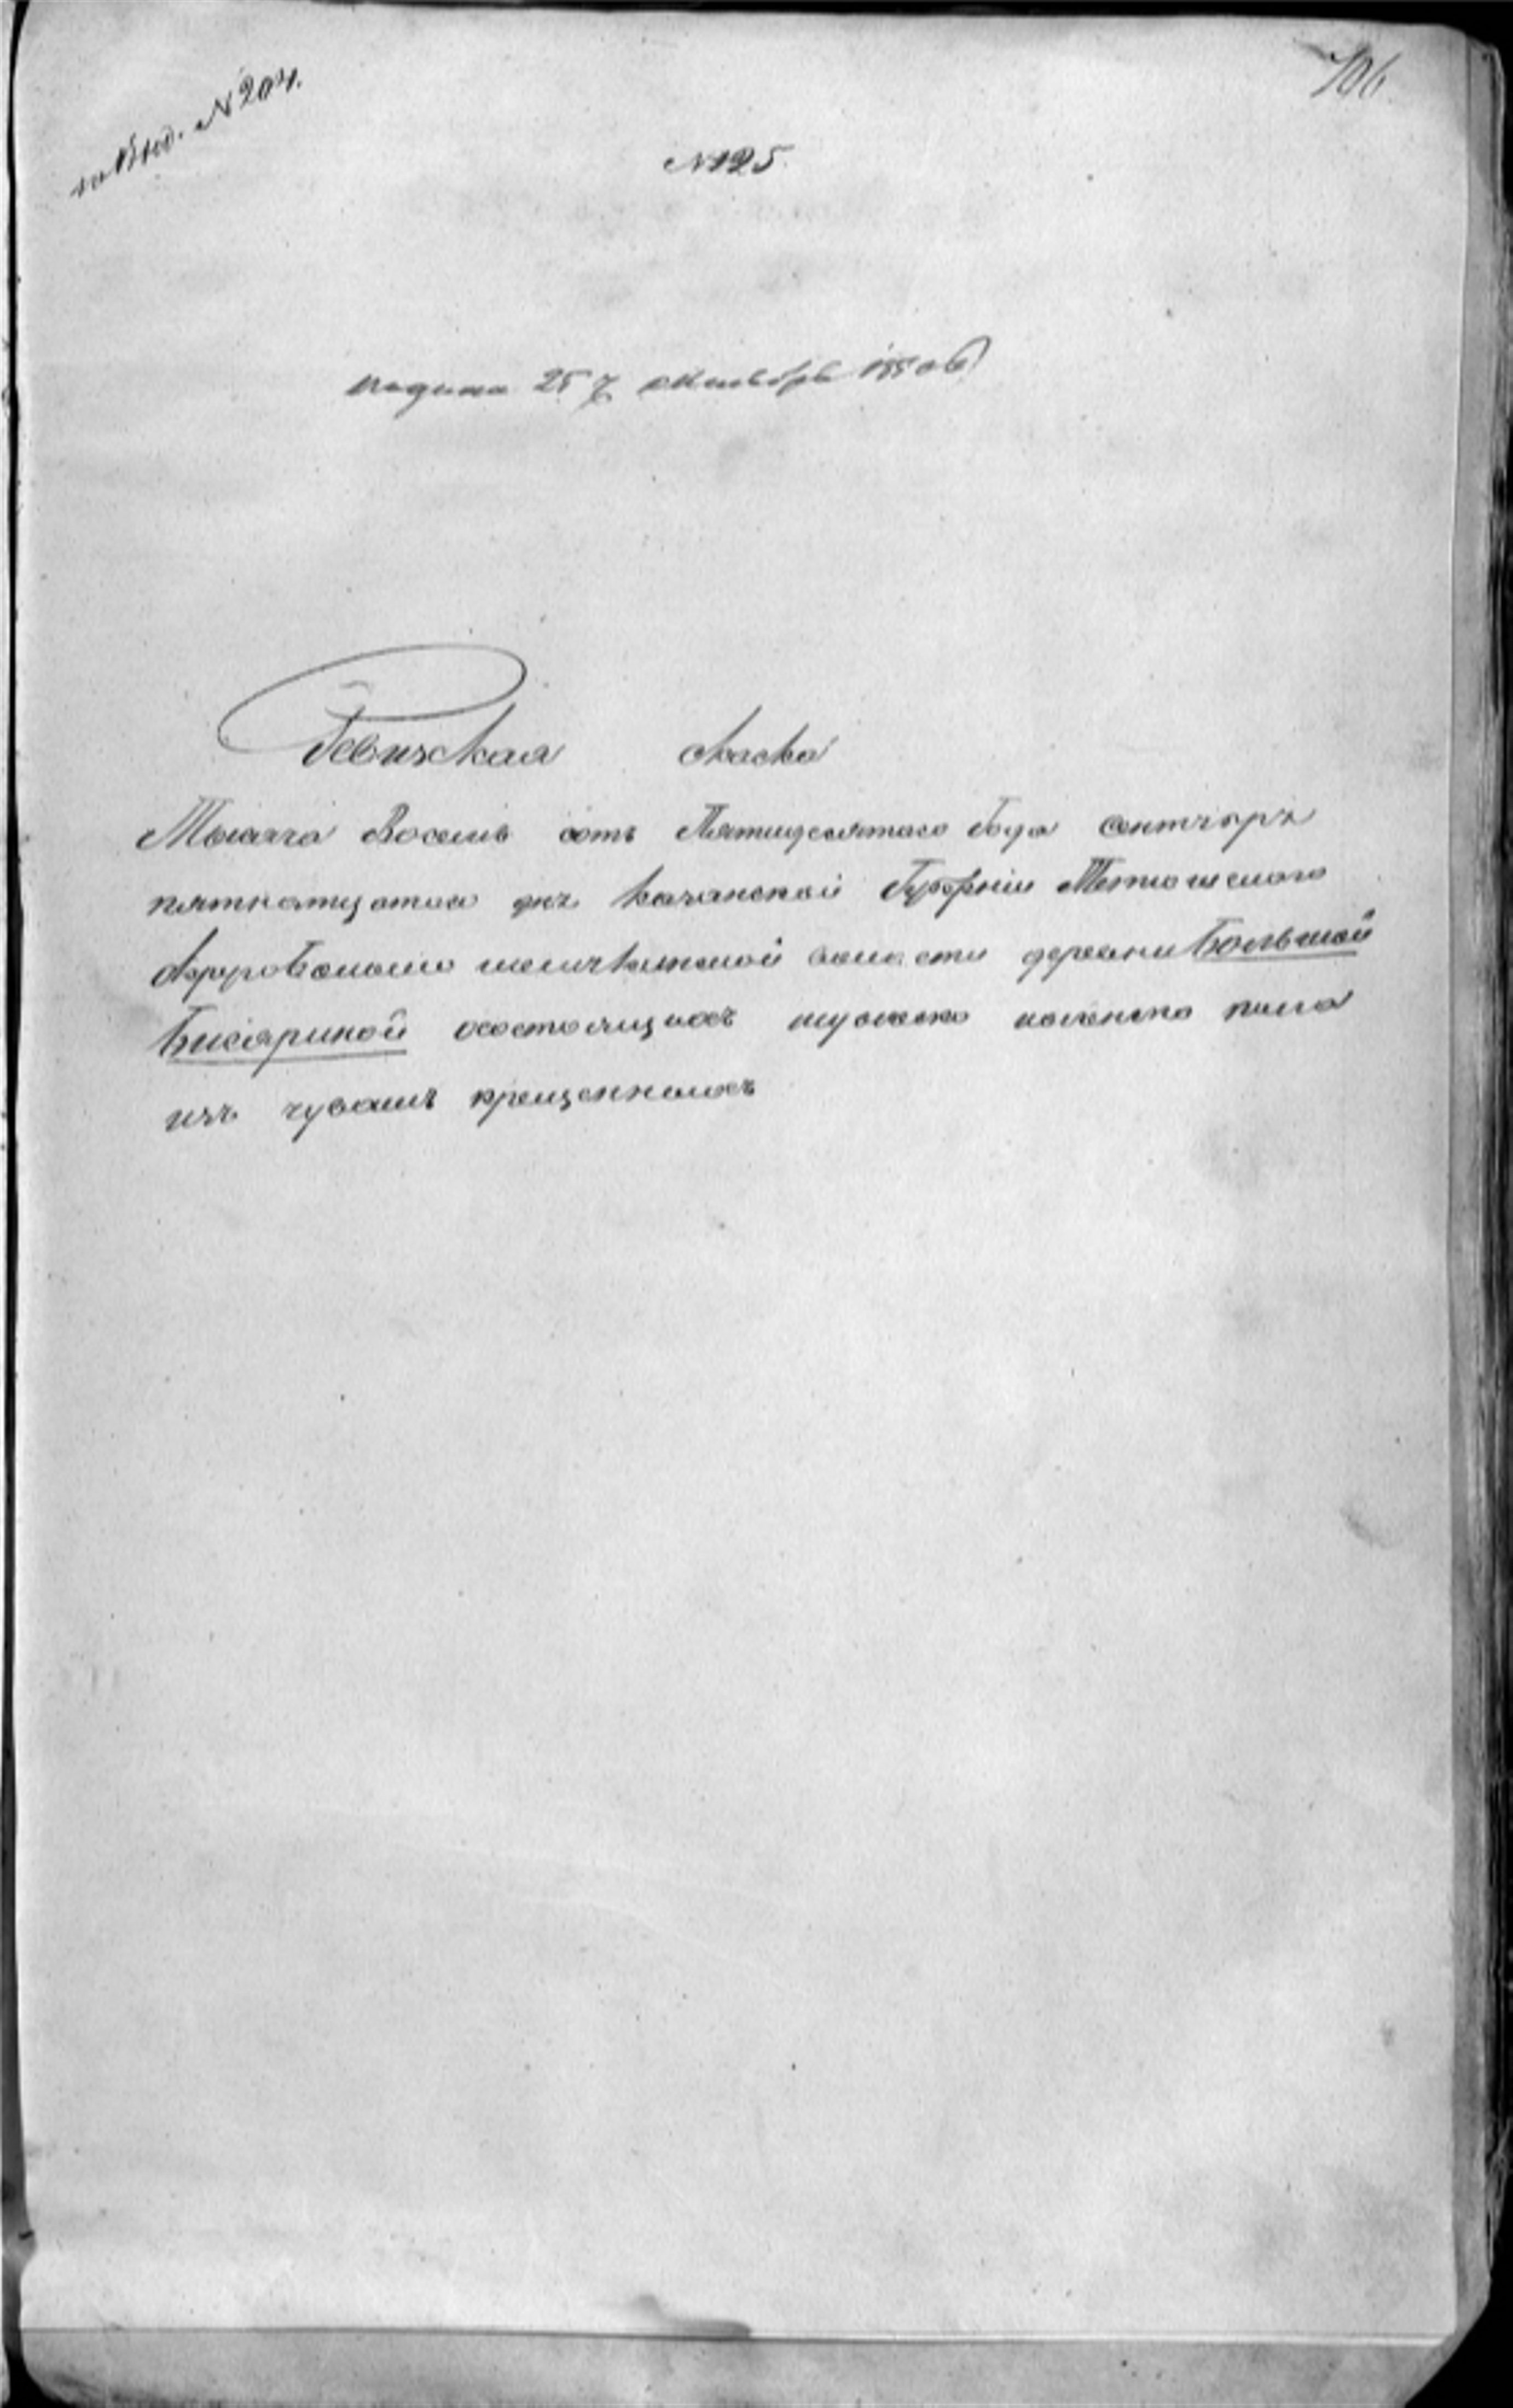 № 204.
106
№ 125
подана 25 октября 1850
Ревизская сказка
Тысяча Восемь сотъ Пятидесятаго Года сентября
пятнатцатаго дня Казанской Губернiи Тетюшскаго
волости деревни Большой
состоящихъ мужеска женска пола
изъ чувашъ крещенныхъ